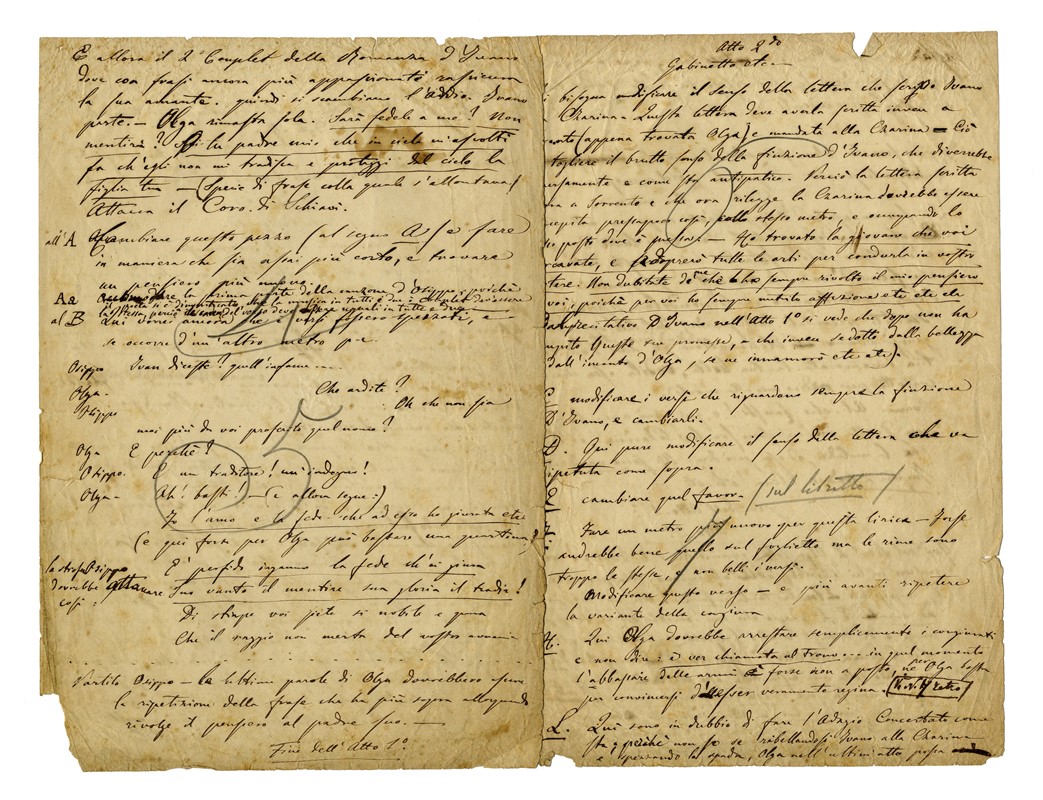 E allora il 2° Couplet della Romanza d'Ivano
dove con frasi ancora più appassionate rassicura
la sua amante. quindi si scambiano l'addio. Ivano
parte. — Olga rimasta sola. Sarà fedele a me? Non
mentirà? tu padre mio che in cielo m'ascolti
fa ch'egli non mi tradisca e proteggi dal cielo la
figlia tua — (Specie di frase colla quale s'allontana)
Attacca il Coro di Schiavi.
all'A Cambiare questo pezzo (al segno A) e fare
in maniera che sia assai più corto, e trovare
un pensiero più nuovo
Aa la prima parte della canzone d'Osippo, poichè
la musica in tutti e due i couplet dev'essere
la stessa, perciò del verso deve essere uguali in tutte e
al B Qui vorrei ancora che i versi fossero spezzati, e
se occorre d'un altro metro p.e.
Osippo Ivan diceste? quell'infame ....
Olga - Che ardite?
Osippo Oh che non sia
mai più da voi proferito quel nome?
Olga E perchè?
Osippo. È un traditore! un indegno!
Olga - Ah! basti! — (e allora segue:)
Io l'amo e la fede che ad esso ho giurata etc
(e qui forse per Olga può bastare una quartina)
la strofa Osippo
dovrebbe attaccare
così:
E' perfido inganno la fede ch'ei giura
Suo vanto il mentire sua gloria il tradir!
Di stirpe voi siete sì nobile e pura
Che il raggio non merta del vostro
Partito Osippo — le ultime parole di Olga dovrebbero essere
la ripetizione della frase che ha più sopra allorquando
rivolge il pensiero al padre suo. —
Fine dell'Atto 1°
Atto 2do
Gabinetto etc —
bisogna modificare il senso della lettera che scrisse Ivano
Czarina - Questa lettera deve averla scritta invece a
(appena trovata Olga) e mandata alla Czarina — Ciò
togliere il brutto senso della finzione d'Ivano, che diverrebbe
e come sta antipatico. Perciò la lettera scritta
a Sorrento e che ora rilegge la Czarina dovrebbe essere
concepita pressapoco così, collo stesso metro, e occupando lo
posto dove è messa — Ho trovato la giovane che voi
cercavate, e adoprerò tutte le arti per condurla in vostro
potere. Non dubitate di me chè ho sempre rivolto il mio pensiero
voi, poichè per voi ho sempre nutrito affezione etc etc ela
D'Ivano nell'Atto 1° si vede che dopo non ha
queste sue promesse, e che invece sedotto dalla bellezza
dall'incanto d'Olga, se ne innamorò etc etc).
C modificare i versi che riguardano sempre la finzione
D'Ivano, e cambiarli.
D. Qui pure modificare il senso della lettera che va
ripetuta come sopra.
cambiare quel favor. (sul libretto)
Fare un metro più nuovo per questa lirica — Forse
andrebbe bene quello sul foglietto ma le rime sono
troppo le stesse, e non belli i versi.
Modificare questo verso — e più avanti ripetere
la variante della congiura
H. Qui Olga dovrebbe arrestare semplicemente i congiurati
e non dire: è ver chiamata al Trono ... in quel momento
l'abbassare delle armi è forse non a posto, nè Olga basta
per convincersi d'esser veramente regina.
L. Qui sono in dubbio di fare l'Adagio Concertato come
sta; perchè non so se ribellandosi Ivano alla Czarina
e spezzando la spada, Olga nell'ultimo atto, possa